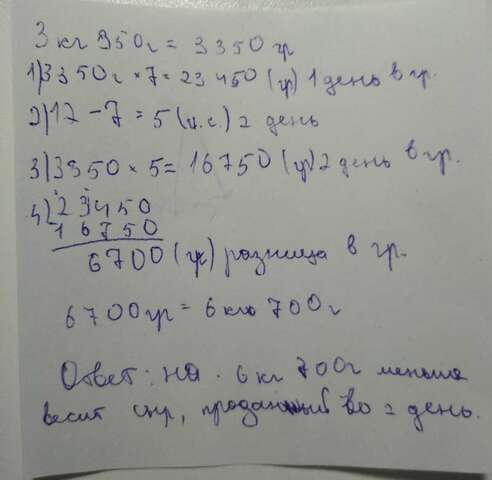 3 кг 350г = 3350 гр
1) 3350г × 7 = 23450 (гр) 1 день в гр.
2) 12 - 7 = 5 (ч.с.) 2 день
3) 3350 × 5 = 16750 (гр) 2 день в гр.
4) 23450
16750
6700 (гр) разница в гр.
6700гр = 6 кг 700г
Ответ: на 6 кг 700г меньше
весит сыр, проданный во 2 день.